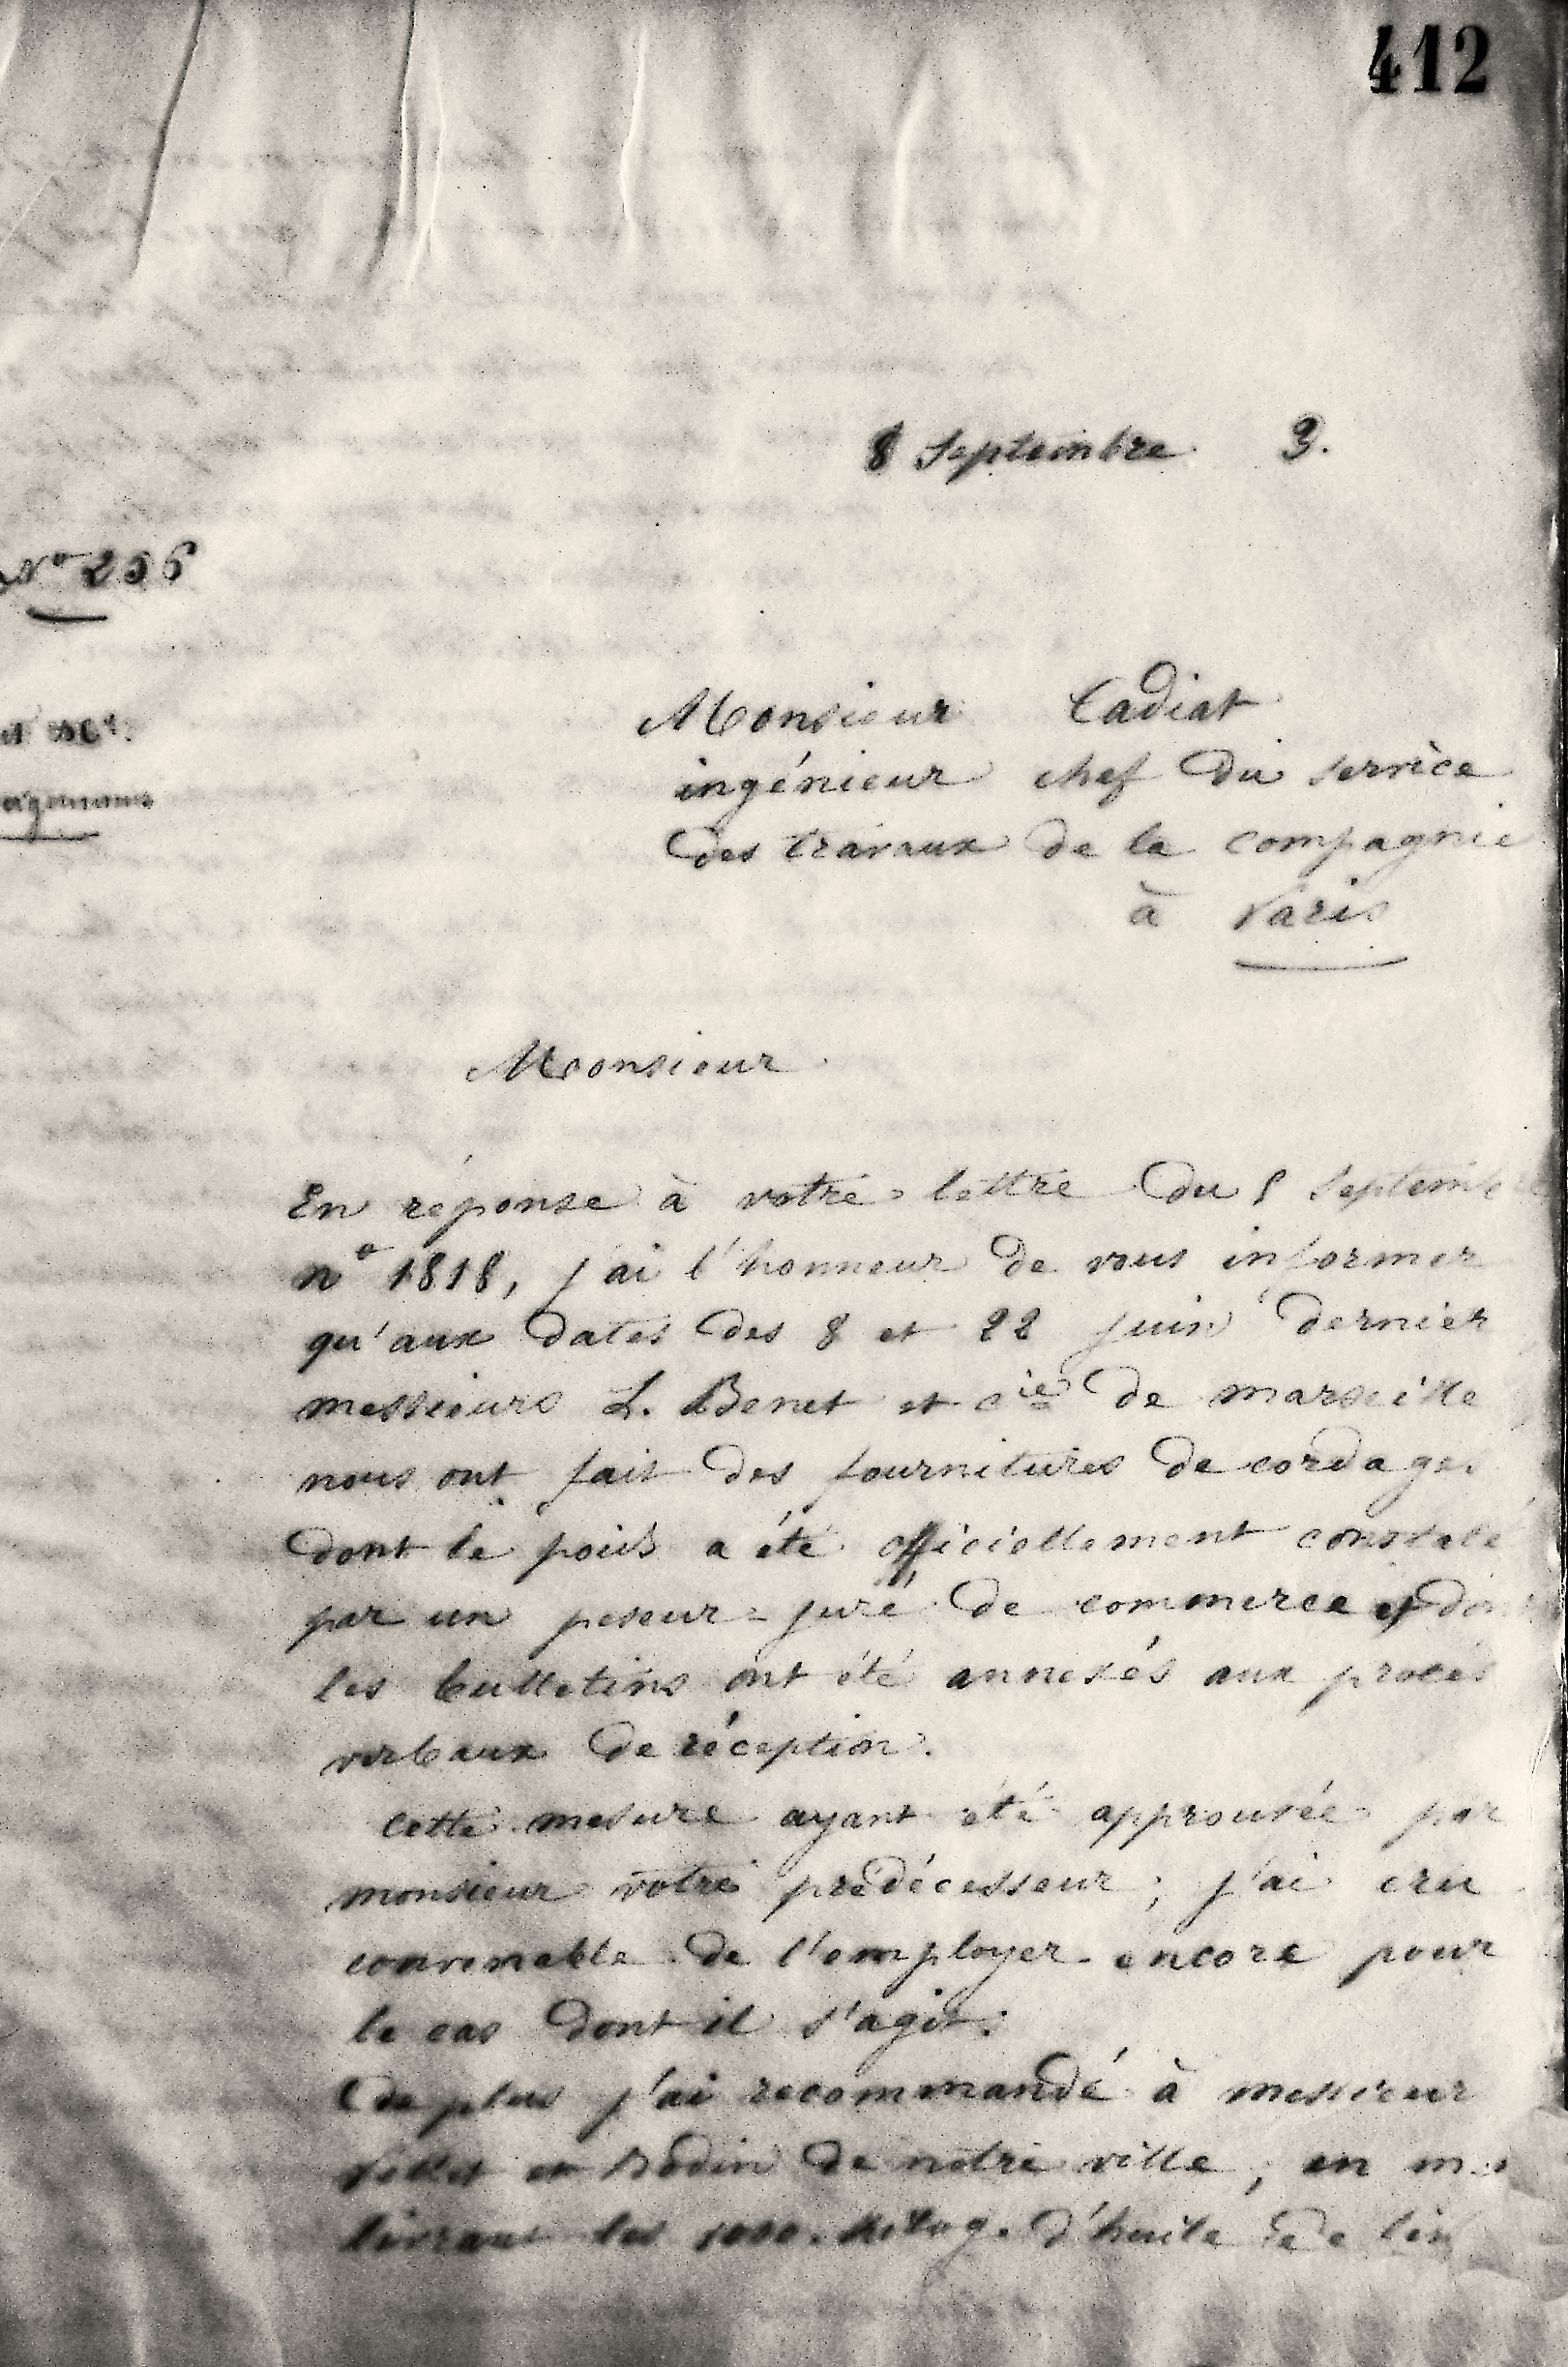 412
8 Septembre 3.
N° 256
Monsieur Cadiat
ingénieur chef du service
des travaux de la compagnie
à Paris
Monsieur
En réponse à votre lettre du 5 Septembre
n° 1818, j'ai l'honneur de vous informer
qu'aux dates des 8 et 22 juin dernier
messieurs L. Benet et Cie de marseille
nous ont fait des fournitures de cordage
dont le poids a été officiellement constaté
par un peseur = juré de commerce et dont
les bulletins ont été annexés aux procés
verbaux de réception.
cette mesure ayant été approuvée par
monsieur votre prédécesseur, j'ai cru
convenable de l'employer encore pour
le cas dont il s'agit.
De plus j'ai recommandé à messieur
et Bodin de notre ville, en me
livrant les 1000 kilog. d'huile de lin